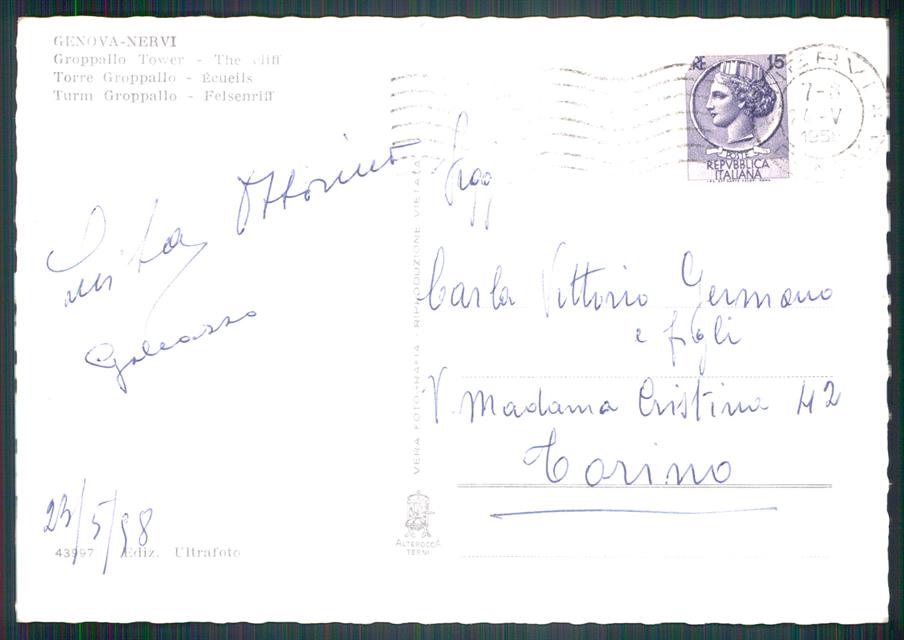 GENOVA-NERVI
Groppallo Tower - The cliff
Torre Groppallo - Écueils
Turm Groppallo - Felsenriff
RE 15
POSTE
REPVBBLICA
ITALIANA
NERVI
7-8
V
Ottorino
Galeasso
23/5/58
43997 Ediz. Ultrafoto
VERA FOTOGRAFIA RIPRODUZIONE VIETATA
ALTEROCCA
TERNI
Sigg
Carla Vittorio Germano
e figli
V. Madama Cristina 42
Torino